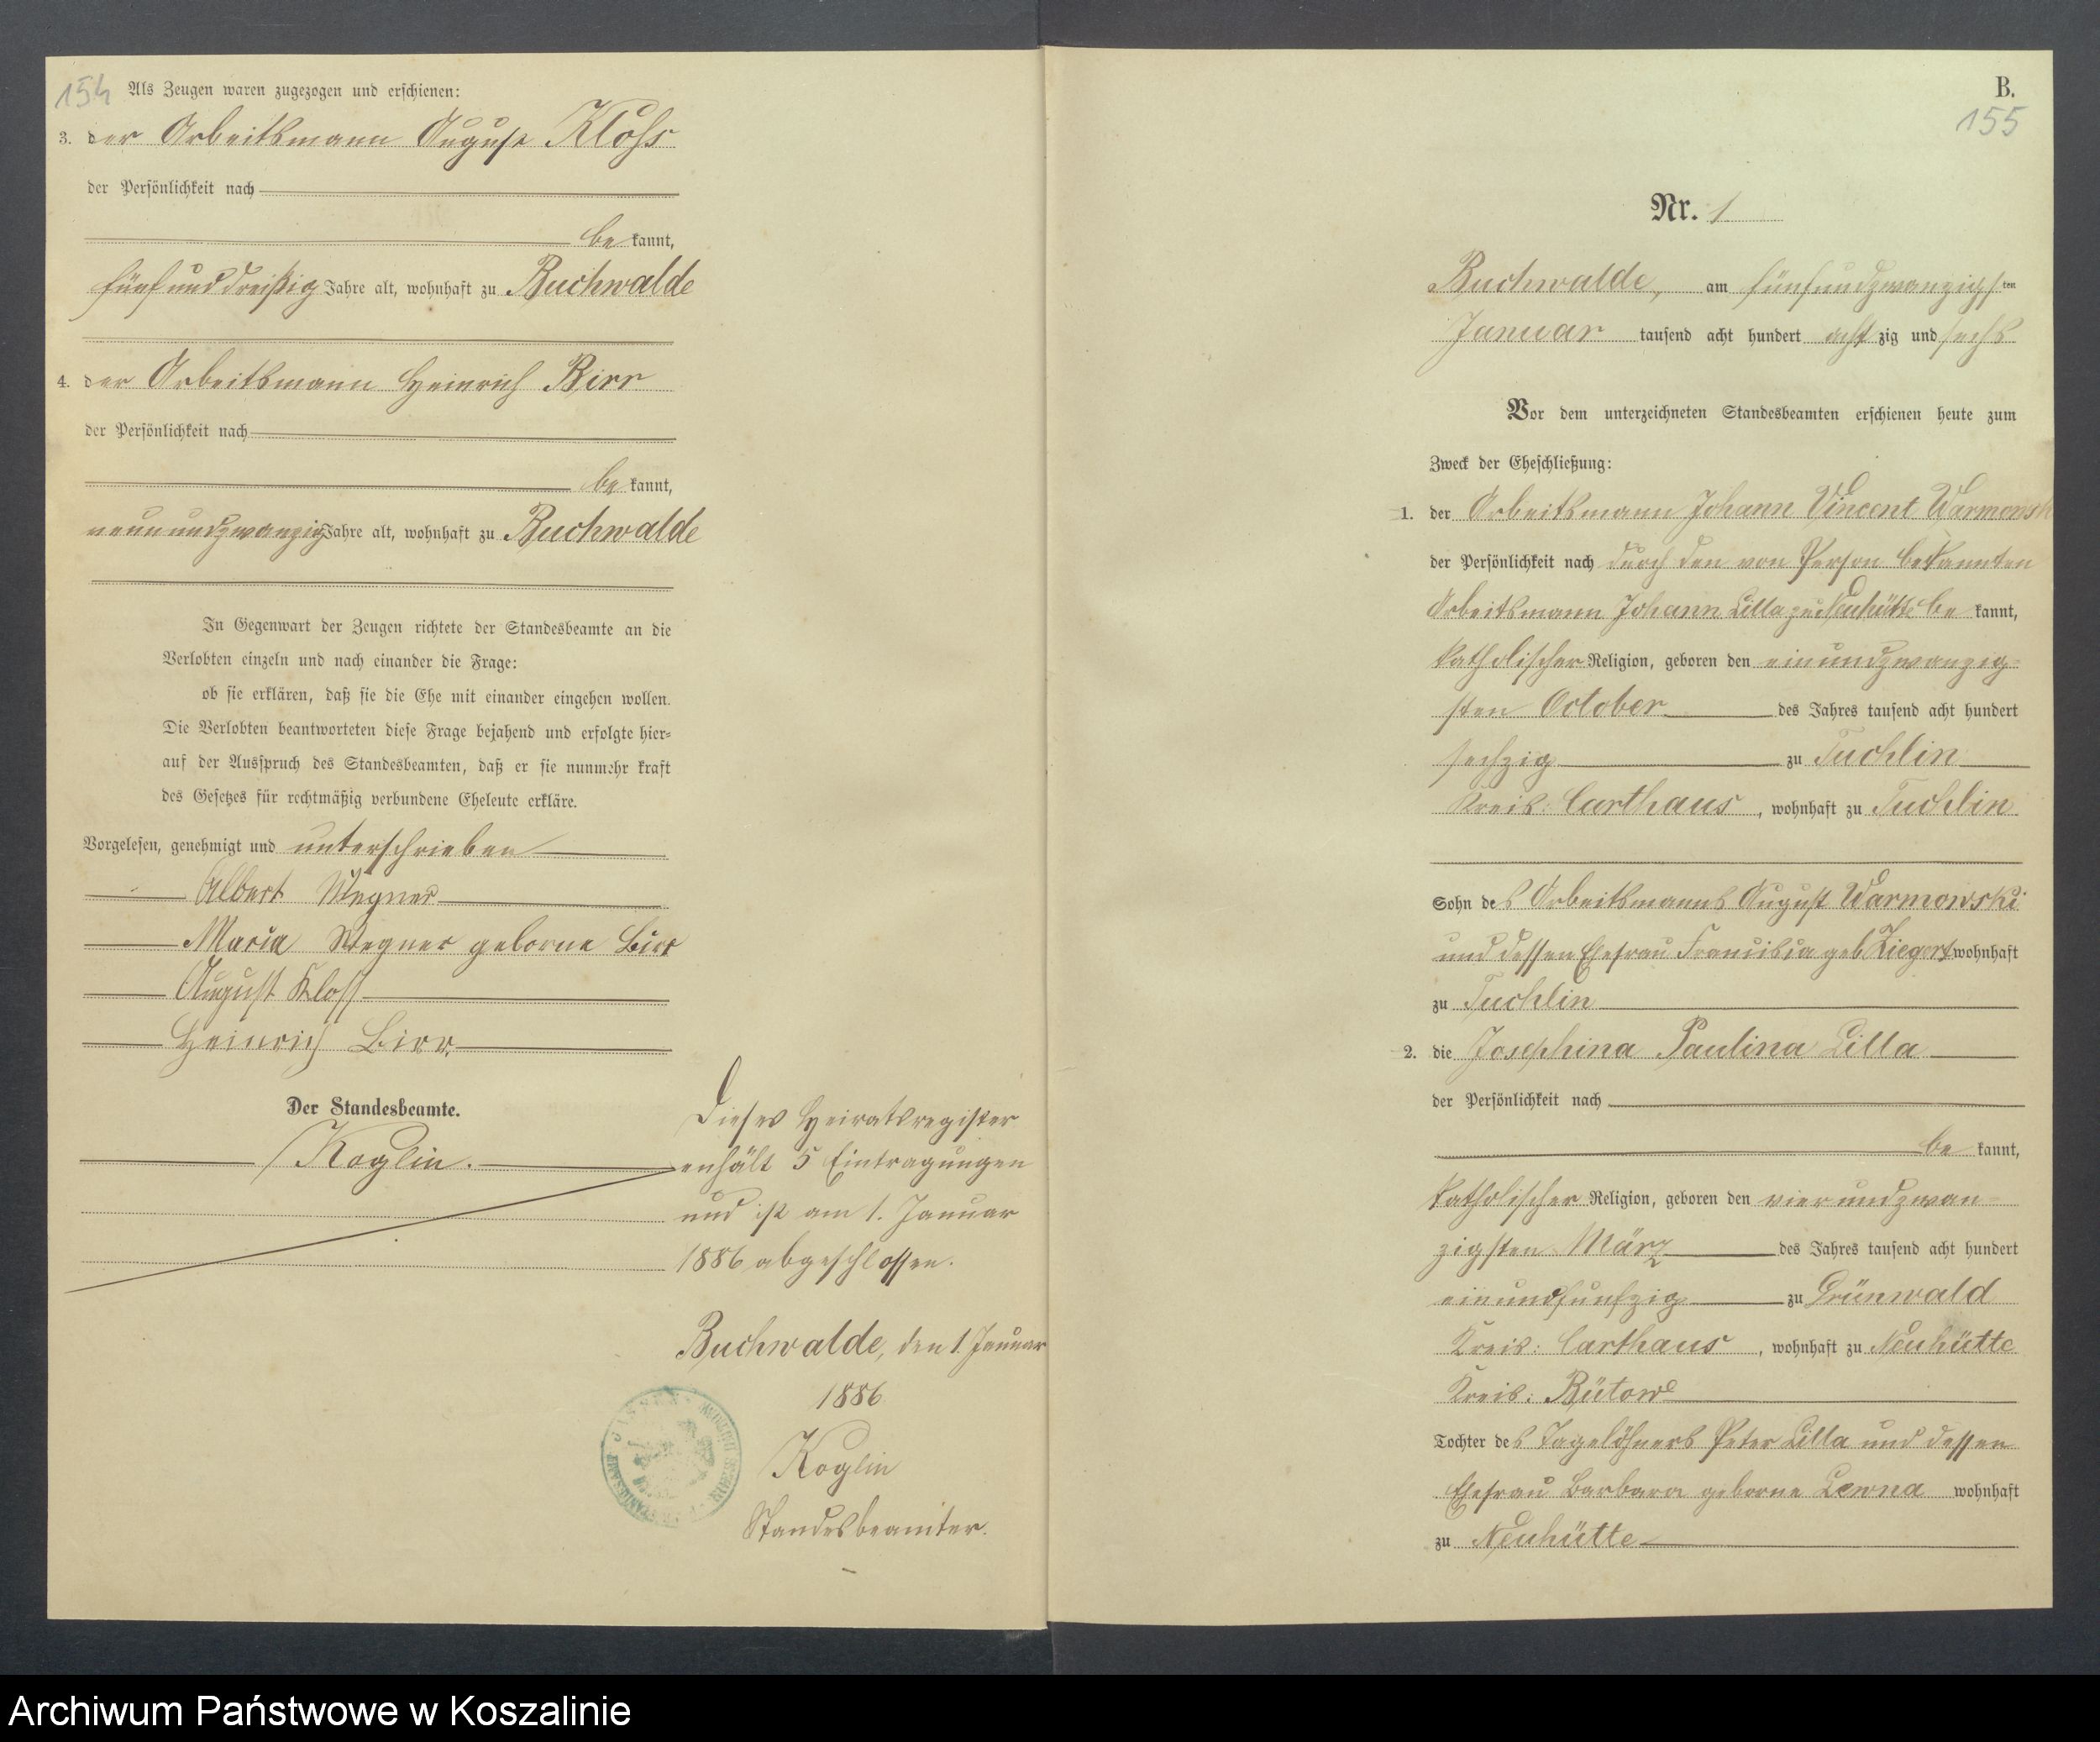 154
Als Zeugen waren zugezogen und erschienen:
3. der Arbeitsmann August Kloss
der Persönlichkeit nach
be kannt,
fünfunddreißig Jahre alt, wohnhaft zu Buchwalde
4. der Arbeitsmann Heinrich Birr
der Persönlichkeit nach
be kannt,
neunundzwanzig Jahre alt, wohnhaft zu Buchwalde
In Gegenwart der Zeugen richtete der Standesbeamte an die
Verlobten einzeln und nach einander die Frage:
ob sie erklären, daß sie die Ehe mit einander eingehen wollen.
Die Verlobten beantworteten diese Frage bejahend und erfolgte hier-
auf der Ausspruch des Standesbeamten, daß er sie nunmehr kraft
des Gesetzes für rechtmäßig verbundene Eheleute erkläre.
Vorgelesen, genehmigt und unterschrieben
Albert Wegner
Maria Wegner geborne Birr
August Kloss
Heinrich Birr
Der Standesbeamte.
Koglin.
Dieses Heiratsregister
enhält 5 Eintragungen
und ist am 1. Januar
1886 abgeschlossen.
Buchwalde, den 1. Januar
1886
Koglin
Standesbeamter.
B.
155
Nr. 1
Buchwalde, am fünfundzwanzigsten
Januar tausend acht hundert acht zig und sechs
Vor dem unterzeichneten Standesbeamten erschienen heute zum
Zweck der Eheschließung:
1. der Arbeitsmann Johann Vincent Warmowsk
der Persönlichkeit nach durch den von Person bekannten
Arbeitsmann Johann Lilla zu Neuhütte be kannt,
katholischer Religion, geboren den einundzwanzig-
sten October des Jahres tausend acht hundert
sechzig zu Tuchlin
Kreis: Carthaus, wohnhaft zu Tuchlin
Sohn des Arbeitsmanns August Warmowski
und dessen Ehefrau geb Ziegert wohnhaft
zu Tuchlin
2. die Josephina Paulina Lilla
der Persönlichkeit nach
be kannt,
katholischer Religion, geboren den vierundzwan-
zigsten März des Jahres tausend acht hundert
einundfunfzig zu Grünwald
Kreis: Carthaus, wohnhaft zu Neuhütte
Kreis: Bütow
Tochter des Tagelöhners Peter Lilla und dessen
Ehefrau Barbara geborne Lewna wohnhaft
zu Neuhütte
Archiwum Państwowe w Koszalinie